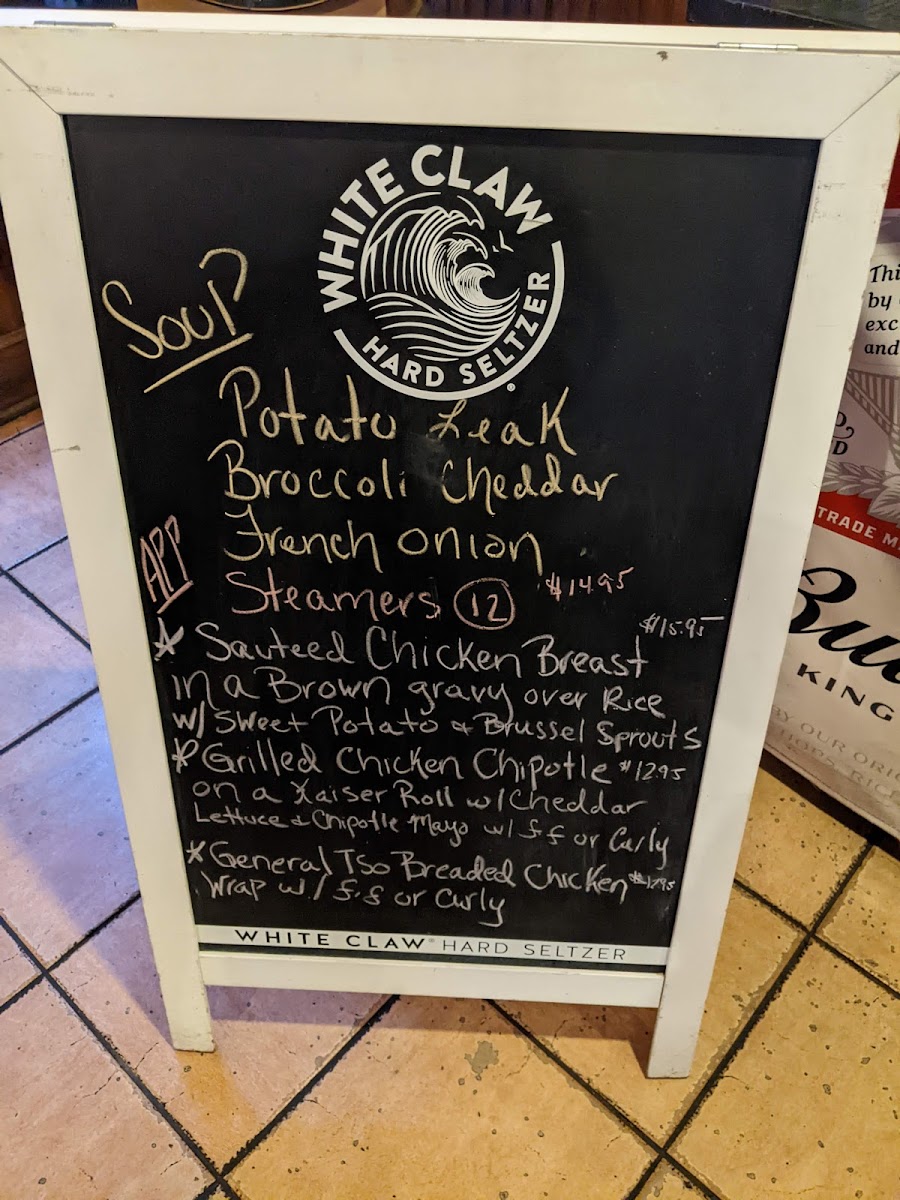 WHITE CLAW
HARD SELTZER
SOUP
Potato Leak
Broccoli Cheddar
French onion
APP
Steamers 12 $14.95
$15.95
* Sauteed Chicken Breast
in a Brown gravy over Rice
w/ Sweet Potato & Brussel Sprouts
* Grilled Chicken Chipotle $12.95
on a Kaiser Roll w/ Cheddar
Lettuce & Chipotle Mayo w/ f.f or Curly
* General Tso Breaded Chicken
Wrap w/ f.f or Curly
WHITE CLAW® HARD SELTZER
Thi
by
exc
and
TRADE M
Bu
KING
BY OUR ORIG
HOPS, RIC